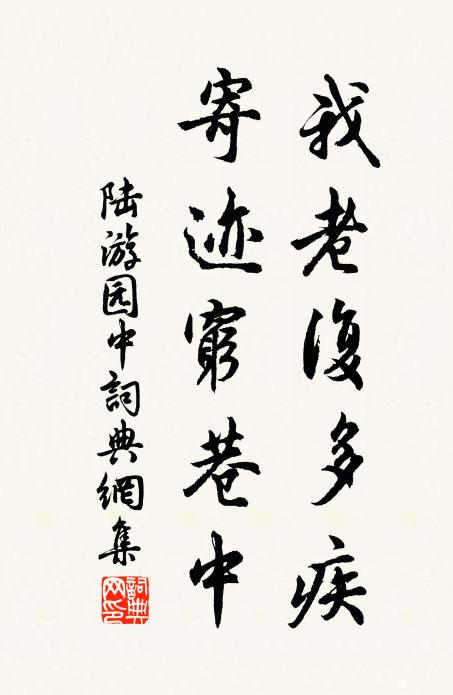 我老復多疾
寄迹窮巷中
陆游园中詞典網集
詞典網印